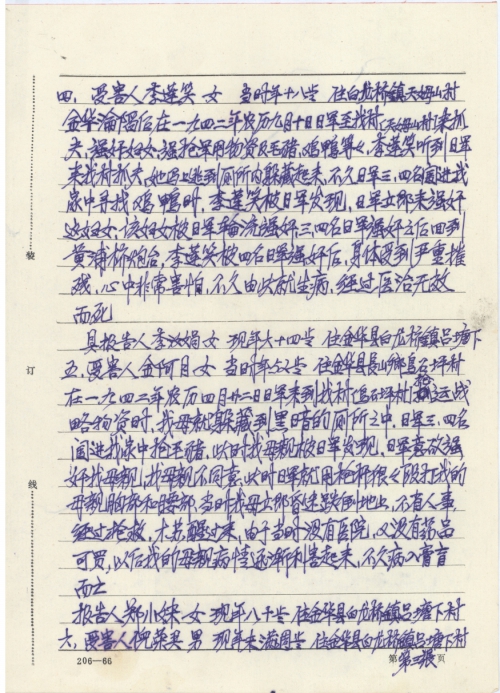 四、受害人李莲笑 女 当时年十八岁 住白龙桥镇天姆山村
金华沦陷后在一九四二年农历九月十日日军至我村(天姆山村)来抓
夫,强奸妇女,强抢军用物资及毛猪,鸡鸭等々,李莲笑听到日军
来我村抓夫,她马上逃到厕所内躲藏起来,不久日军三、四名闯进我
家中寻找鸡鸭时,李莲笑被日军发现,日军立即来强奸
这妇女,该妇女被日军轮流强奸,三、四名日军强奸之后回到
黄浦桥炮台,李莲笑被四名日军强奸后,身体受到严重摧
残,心中非常害怕,不久由此就生病,经过医治无效
而死
具报告人李汝娟 女 现年六十四岁 住金华县白龙桥镇吕塘下
五、受害人金阿月 女 当时年 岁 住金华县长山乡石坪村
在一九四二年农历四月廿二日日军来到我村(石坪村)抢运战
略物资时,我母就躲藏到黑暗的厕所之中,日军三、四名
闯进我家中抢毛猪,此时我母亲被日军发现,日军意欲强
奸我母亲,我母亲不同意,此时日军就用枪柄很々殴打我的
母亲胸部和腰部,当时我母立即昏迷跌倒地上,不省人事,
经过抢救,才苏醒过来,由于当时没有医院,又没有药品
可买,以后我的母亲病情逐渐利害起来,不久病入膏肓
而亡
报告人郑小妹 女 现年八十岁 住金华县白龙桥镇吕塘下村
六、受害人倪荣 男 现年 周岁 住金华县白龙桥镇吕塘下村
装
订
线
206—66
第三张页